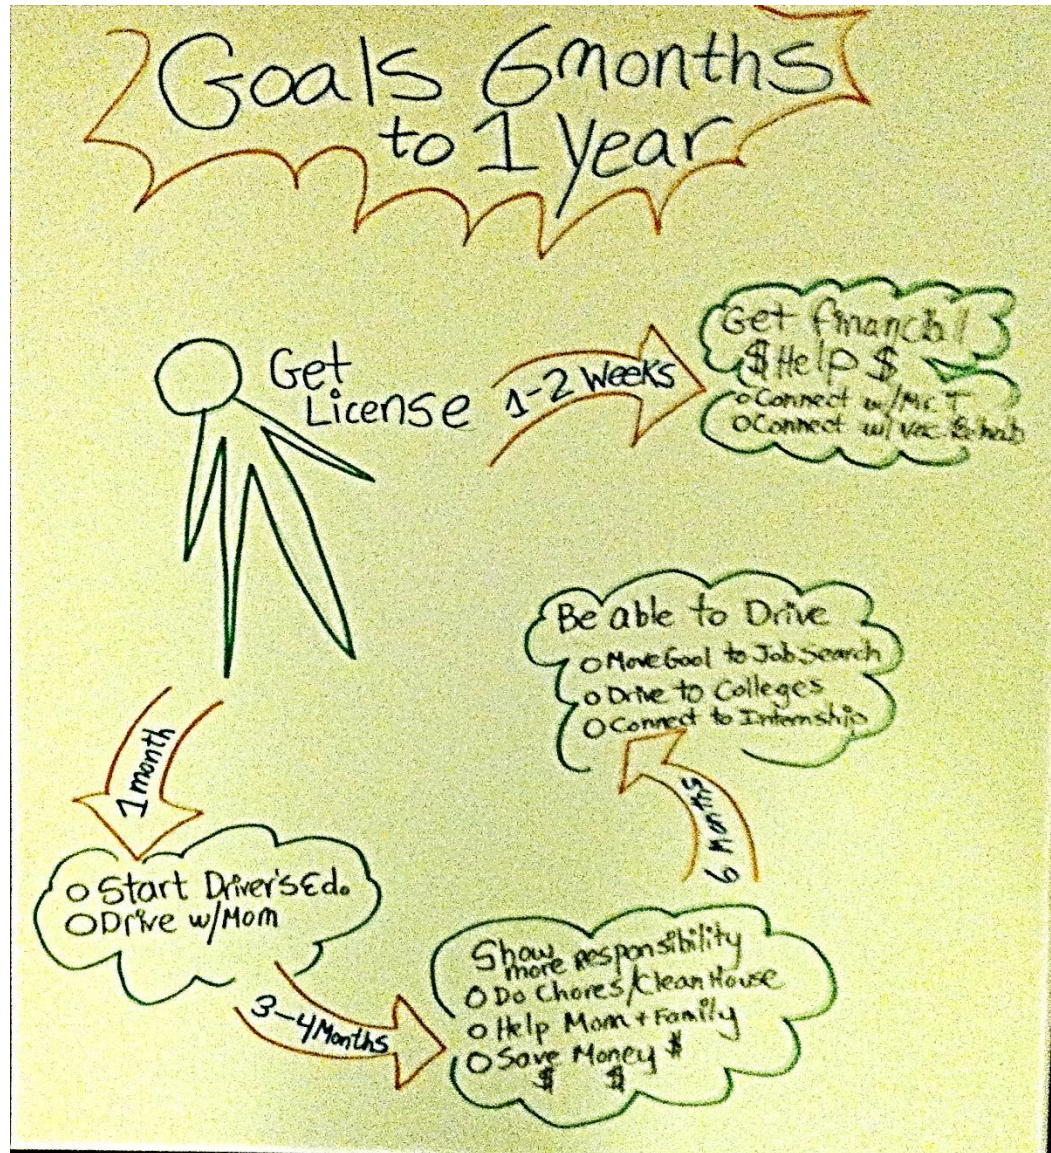 Goals 6months
to 1 Year
Get
License
1-2 Weeks
Get financial
$Help $
o Connect w/Mr. T
o Connect w/ Voc Rehab
1 month
o Start Driver's Ed.
o Drive w/Mom
3-4 Months
Show
more Responsibility
o Do Chores/Clean House
o Help Mom + Family
o Save Money $
$ $
6 Months
Be able to Drive
o Move Goal to Job Search
o Drive to Colleges
o Connect to Internship